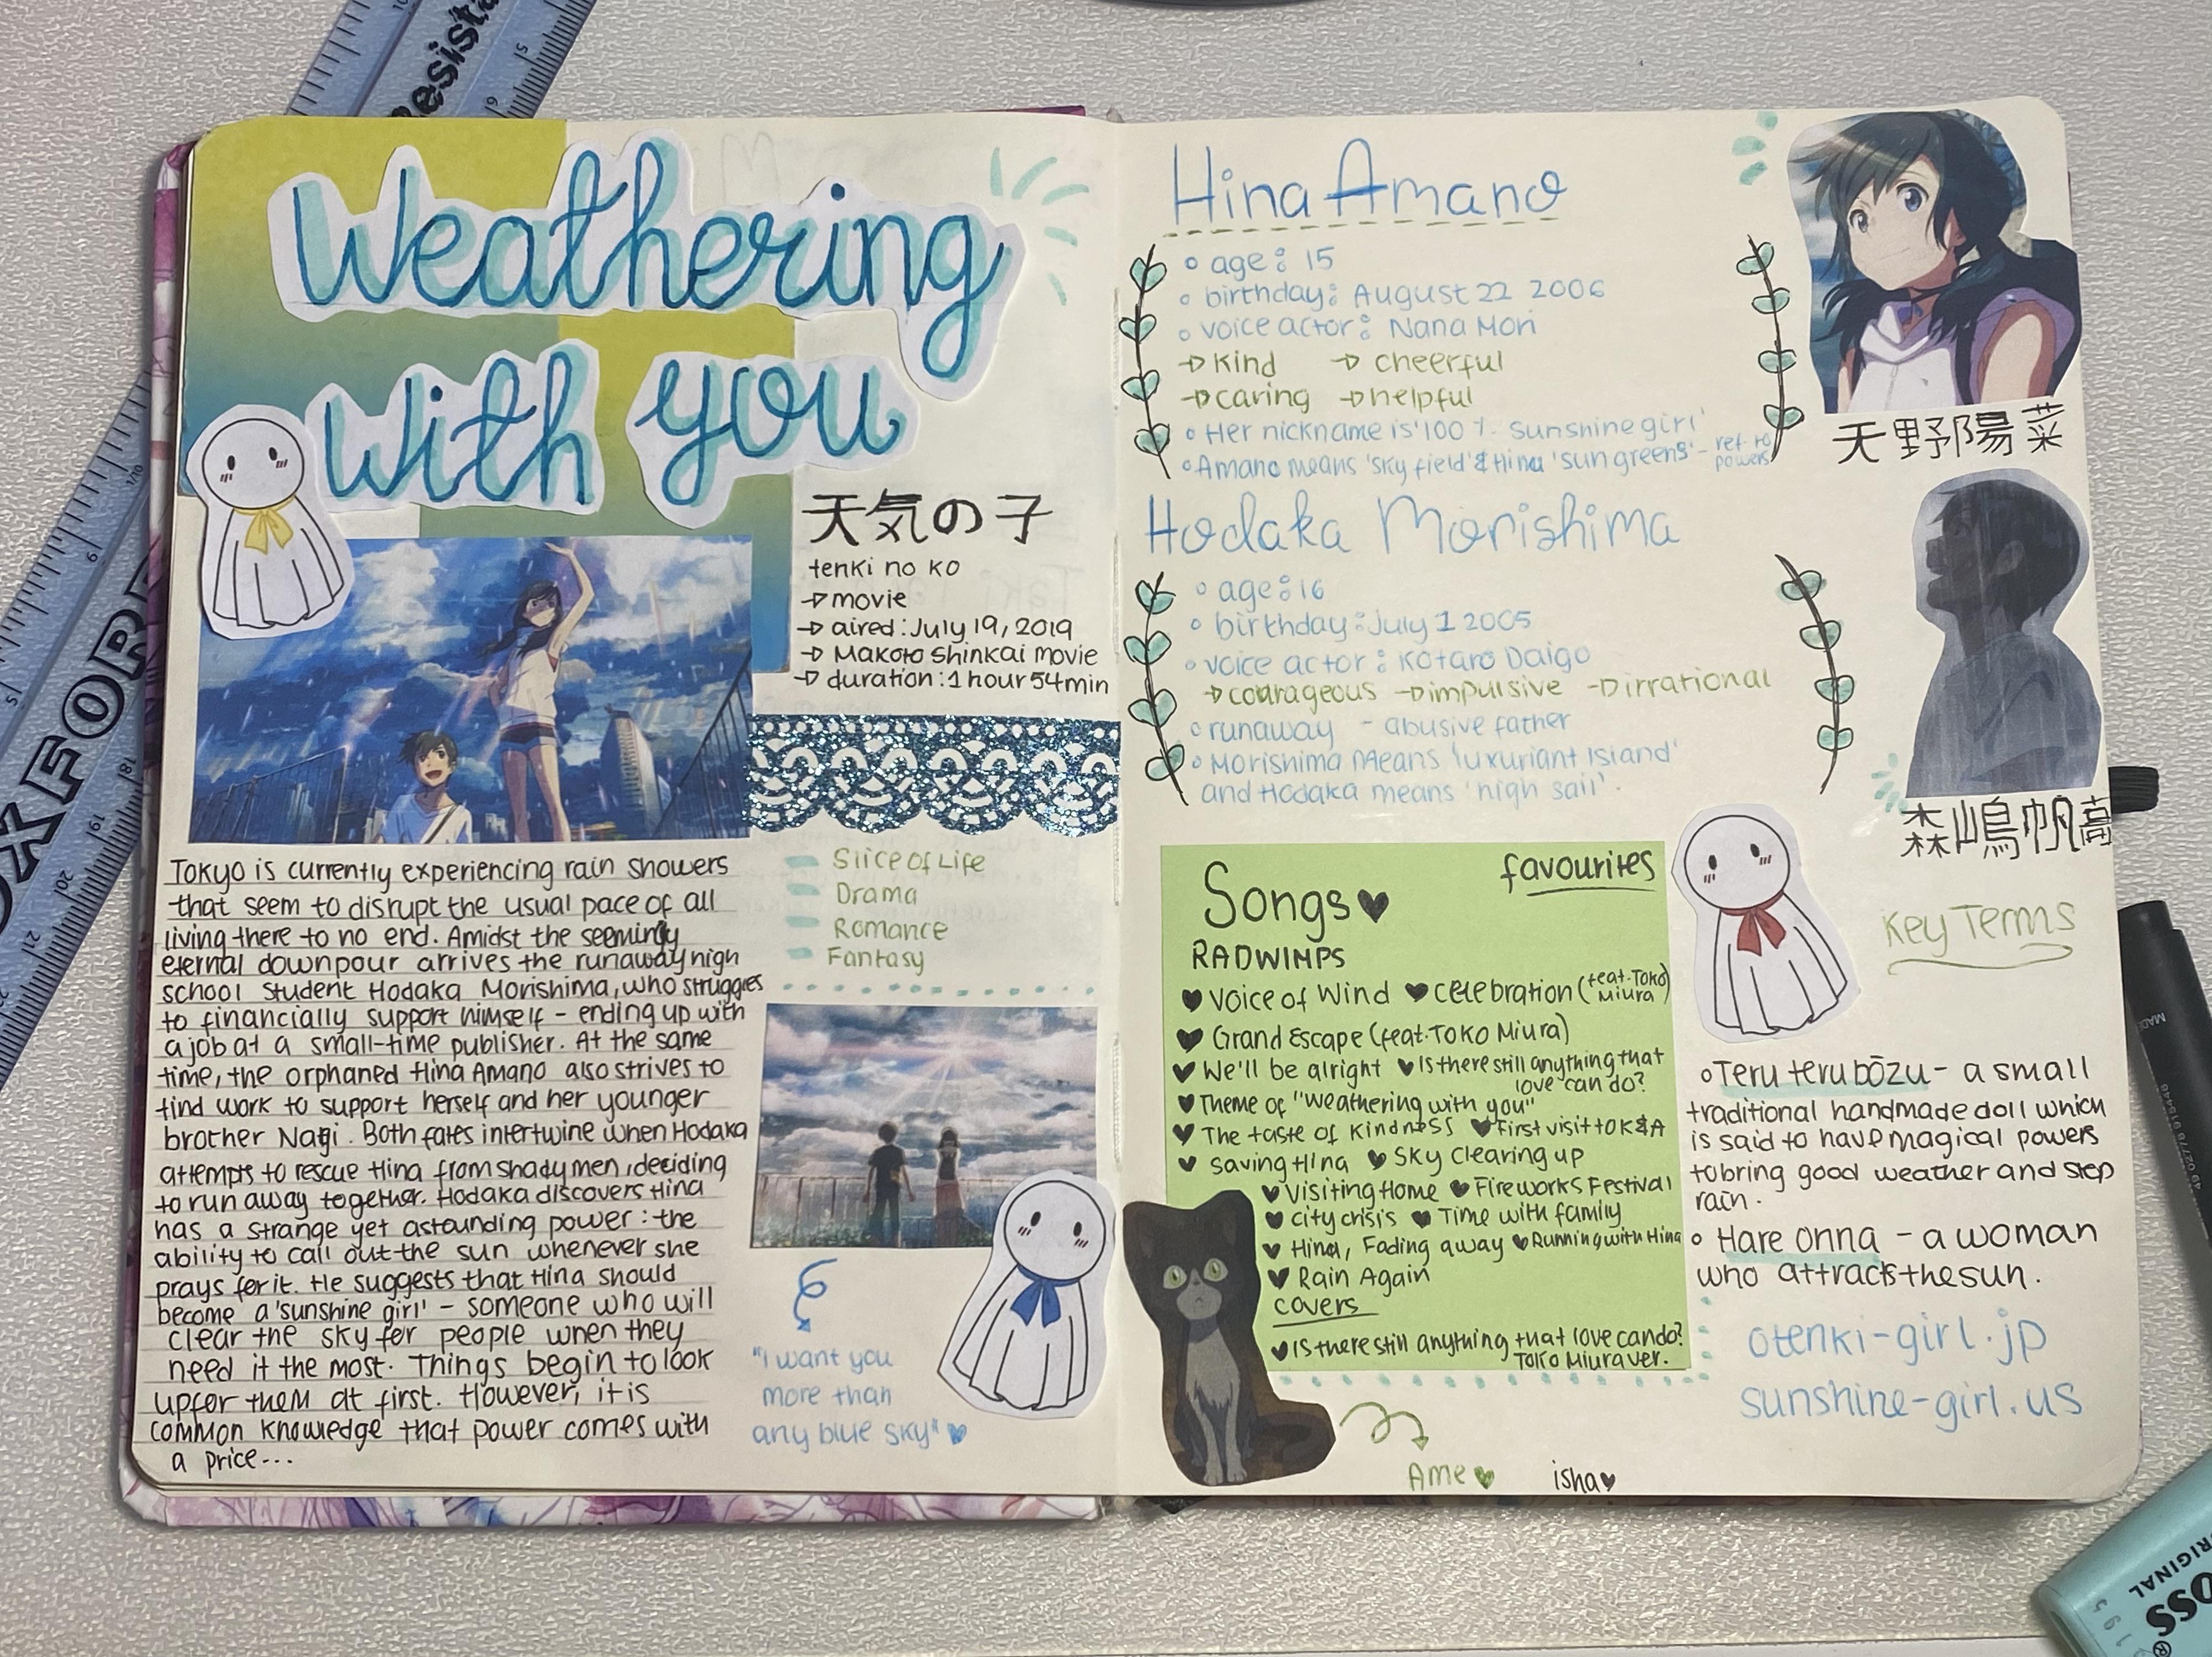 Weathering
with you
天気の子
tenki no ko
→ movie
→ aired: July 19, 2019
→ Makoto Shinkai movie
→ duration: 1 hour 54min
Tokyo is currently experiencing rain showers
that seem to disrupt the usual pace of all
living there to no end. Amidst the seemingly
eternal downpour arrives the runaway high
school student Hodaka Morishima, who struggles
to financially support himself - ending up with
a job at a small-time publisher. At the same
time, the orphaned Hina Amano also strives to
find work to support herself and her younger
brother Nagi. Both fates intertwine when Hodaka
attempts to rescue Hina from shady men, deciding
to run away together. Hodaka discovers Hina
has a strange yet astounding power: the
ability to call out the sun whenever she
prays for it. He suggests that Hina should
become a 'sunshine girl' - someone who will
clear the sky for people when they
need it the most. Things begin to look
up for them at first. However, it is
common knowledge that power comes with
a price...
Slice of Life
Drama
Romance
Fantasy
"I want you
more than
any blue sky"
Hina Amano
age: 15
birthday: August 22 2006
voice actor: Nana Mori
→ kind → cheerful
→ caring → helpful
Her nickname is '100% sunshine girl'
Amano means 'sky field' & Hina 'sun greens' - ref to
powers
天野陽菜
Hodaka Morishima
age: 16
birthday: July 1 2005
voice actor: Kotaro Daigo
→ courageous → impulsive → irrational
runaway - abusive father
Morishima means 'luxuriant island'
and Hodaka means 'high sail'.
森嶋帆高
Songs♥ favourites
RADWIMPS
♥ Voice of Wind ♥ Celebration (feat. Toko
Miura)
♥ Grand Escape (feat. Toko Miura)
♥ We'll be alright ♥ Is there still anything that
love can do?
♥ Theme of "weathering with you"
♥ The taste of Kindness ♥ First visit to K&A
♥ Saving Hina ♥ Sky clearing up
♥ Visiting Home ♥ Fireworks Festival
♥ City crisis ♥ Time with family
♥ Hina, Fading away ♥ Running with Hina
♥ Rain Again
covers
♥ Is there still anything that love can do?
Toko Miura ver.
Key Terms
Teru teru bōzu - a small
traditional handmade doll which
is said to have magical powers
to bring good weather and stop
rain.
Hare onna - a woman
who attracts the sun.
otenki-girl.jp
sunshine-girl.us
Ame♥
isha♥
OXFORD
Resista
ORIGINAL
OSS